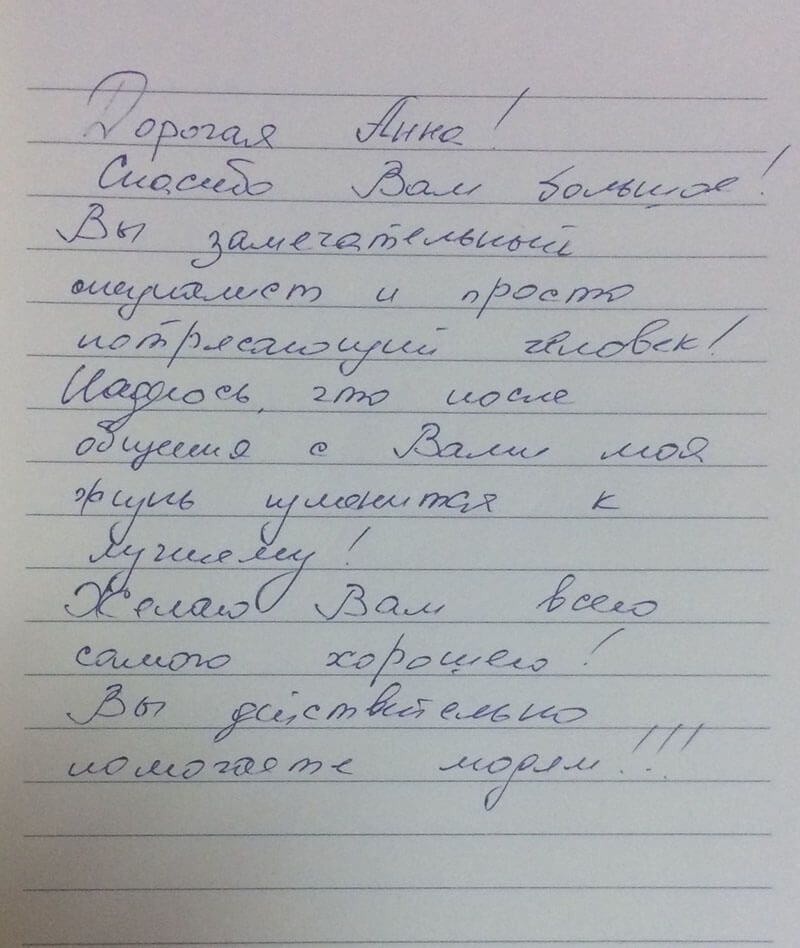 Дорогая Анна!
Спасибо Вам большое!
Вы замечательный
специалист и просто
потрясающий человек!
Надеюсь, что после
общения с Вами моя
жизнь изменится к
лучшему!
Желаю Вам всего
самого хорошего!
Вы действительно
помогаете людям!!!